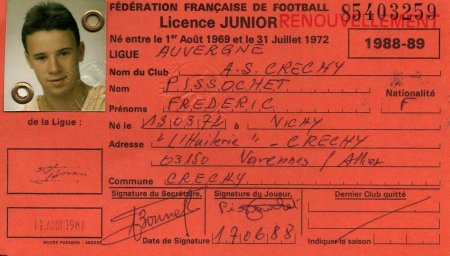 FÉDÉRATION FRANÇAISE DE FOOTBALL 85403259
Licence JUNIOR RENOUVELLEMENT
Né entre le 1er Août 1969 et le 31 Juillet 1972 1988-89
LIGUE AUVERGNE
Nom du Club A.S. CRECHY
Nom PISSOCHET
Nationalité
Prénoms FREDERIC F
de la Ligue :
Né le 19.03.72 à VICHY
Adresse "L'Huilerie" - CRECHY
03150 Varennes / Allier
Commune CRECHY
Signature du Secrétaire, Signature du Joueur, Dernier Club quitté
Bonnet Pissochet
11 AOUT 1988
Date de Signature 17.06.88 Indiquer la saison